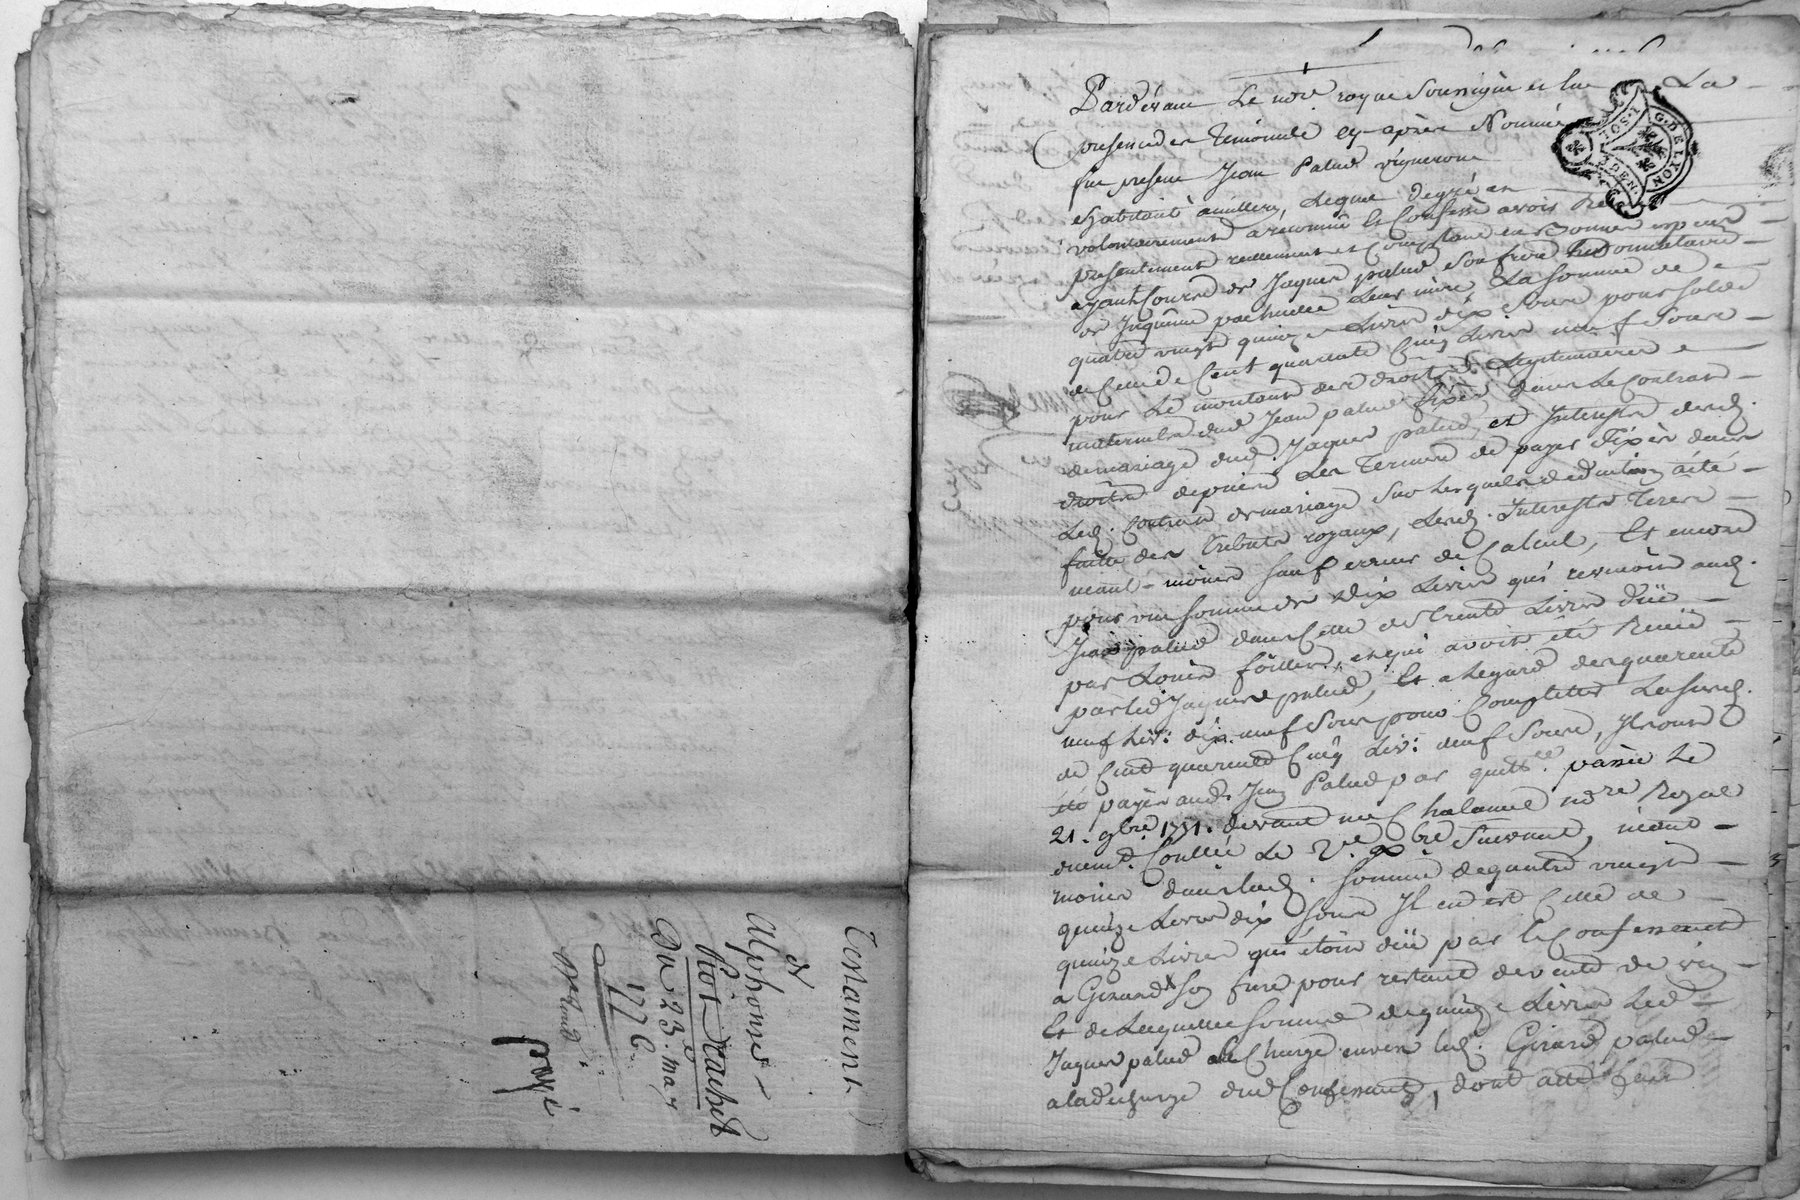 Testament
de
Alphonse
Riot Drachet
Du 23. may
1776
payé
G. DE LYON
Pardevant Le nore royal soussigné et en La
presence des temoins cy après Nommés
fut present Jean Palud vigneron
habitant a, Lequel de gré en
volontairement a reconnu et Confessé avoir
presentement reellement et Comptant en bonnes especes
ayant Cours de Jaques palud son frere donnataire
de leur mère, La somme de
quatre vingt quinze Livres dix sous pour solde
de Celle de Cent quarente Cinq Livres neuf sous
pour Le montant des droits Legitimaires
maternels dud Jean palud fixés dans Le Contrat
de mariage dud. Jaques palud, et Interests desd.
droits depuis Les termes de payer fixés dans
Led. Contrat de mariage sur Lesquels deduction a été
faitte des tributs royaux, Lesd. Interests
neant-moins sauf erreur de Calcul, Et encore
pour une somme de dix Livres qui revenoit aud.
Jean palud dans Celle de trente Livres düe
par Loüis, et qui avoit été
par led Jaques palud, Et a Legard des quarente
neuf Liv: dix neuf sous pour Completter La susd.
de Cent quarente Cinq Liv: neuf sous, Ils ont
été payés aud. Jean Palud par quittce. passée Le
21. 9bre 1751. devant me Chalamel nore Royal
duement Conllée Le 2e. xbre suivant, neant
moins dans lad. somme de quatre vingt
quinze Livres dix sous Il en est Celle de
quinze Livres qui étoit düe par le Confessant
a Girard son frere pour restant de vente de vin
Et de Laquelle somme de quinze Livres Led
Jaques palud se Charge envers led. Girard palud
a la decharge dud Confessant, dont acte fait